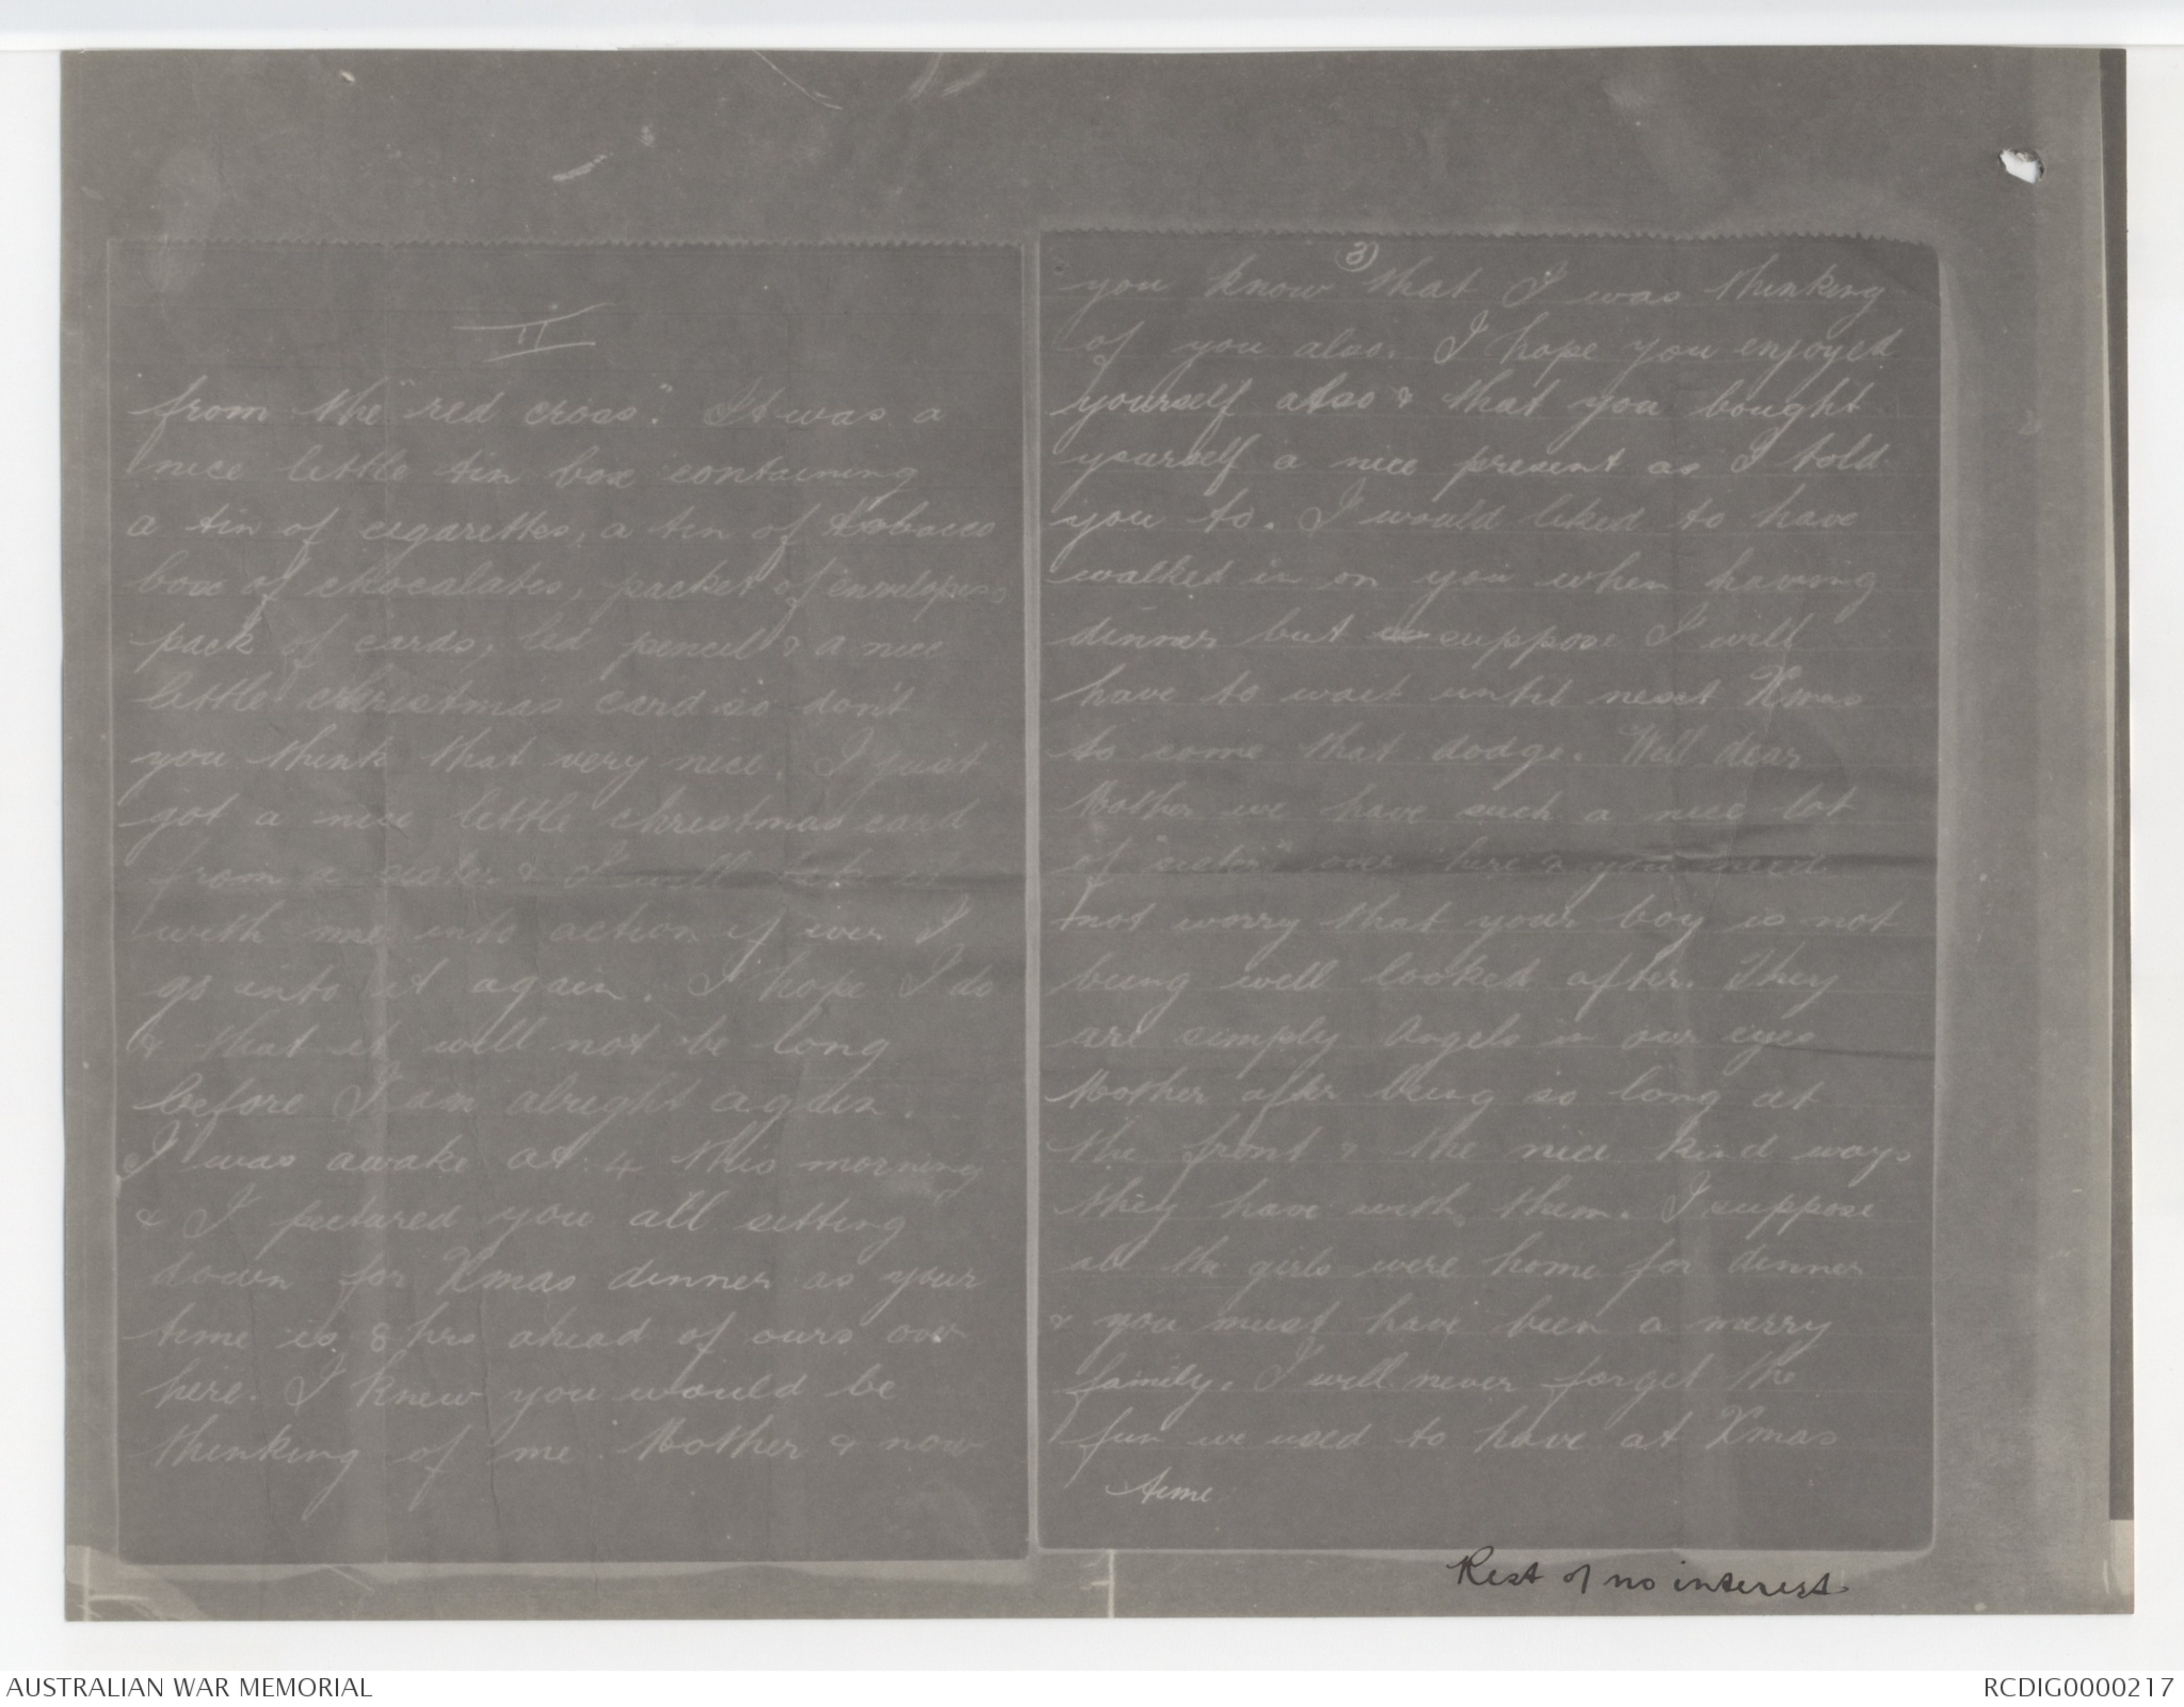 II
from the "red cross". It was a
nice little tin box containing
a tin of cigarettes, a tin of tobacco
box of chocalates, packet of envelopes
pack of cards, led pencil & a nice
little christmas card so don't
you think that very nice. I just
got a nice little christmas card
from a sister & I will take it
with me into action if ever I
go into it again. I hope I do
& that it will not be long
before I am alright again.
I was awake at 4 this morning
& I pictured you all sitting
down for Xmas dinner as your
time is 8 hrs ahead of ours over
here. I knew you would be
thinking of me Mother & now
(3)
you know that I was thinking
of you also. I hope you enjoyed
yourself also & that you bought
yourself a nice present as I told
you to. I would liked to have
walked in on you when having
dinner but suppose I will
have to wait until next Xmas
to come that dodge. Well dear
Mother we have such a nice lot
of "sisters" over here & you need
not worry that your boy is not
being well looked after. They
are simply Angels in our eyes
Mother after being so long at
the front & the nice kind ways
they have with them. I suppose
all the girls were home for dinner
& you must have been a merry
family. I will never forget the
fun we used to have at Xmas
time
Rest of no interest
AUSTRALIAN WAR MEMORIAL
RCDIG0000217